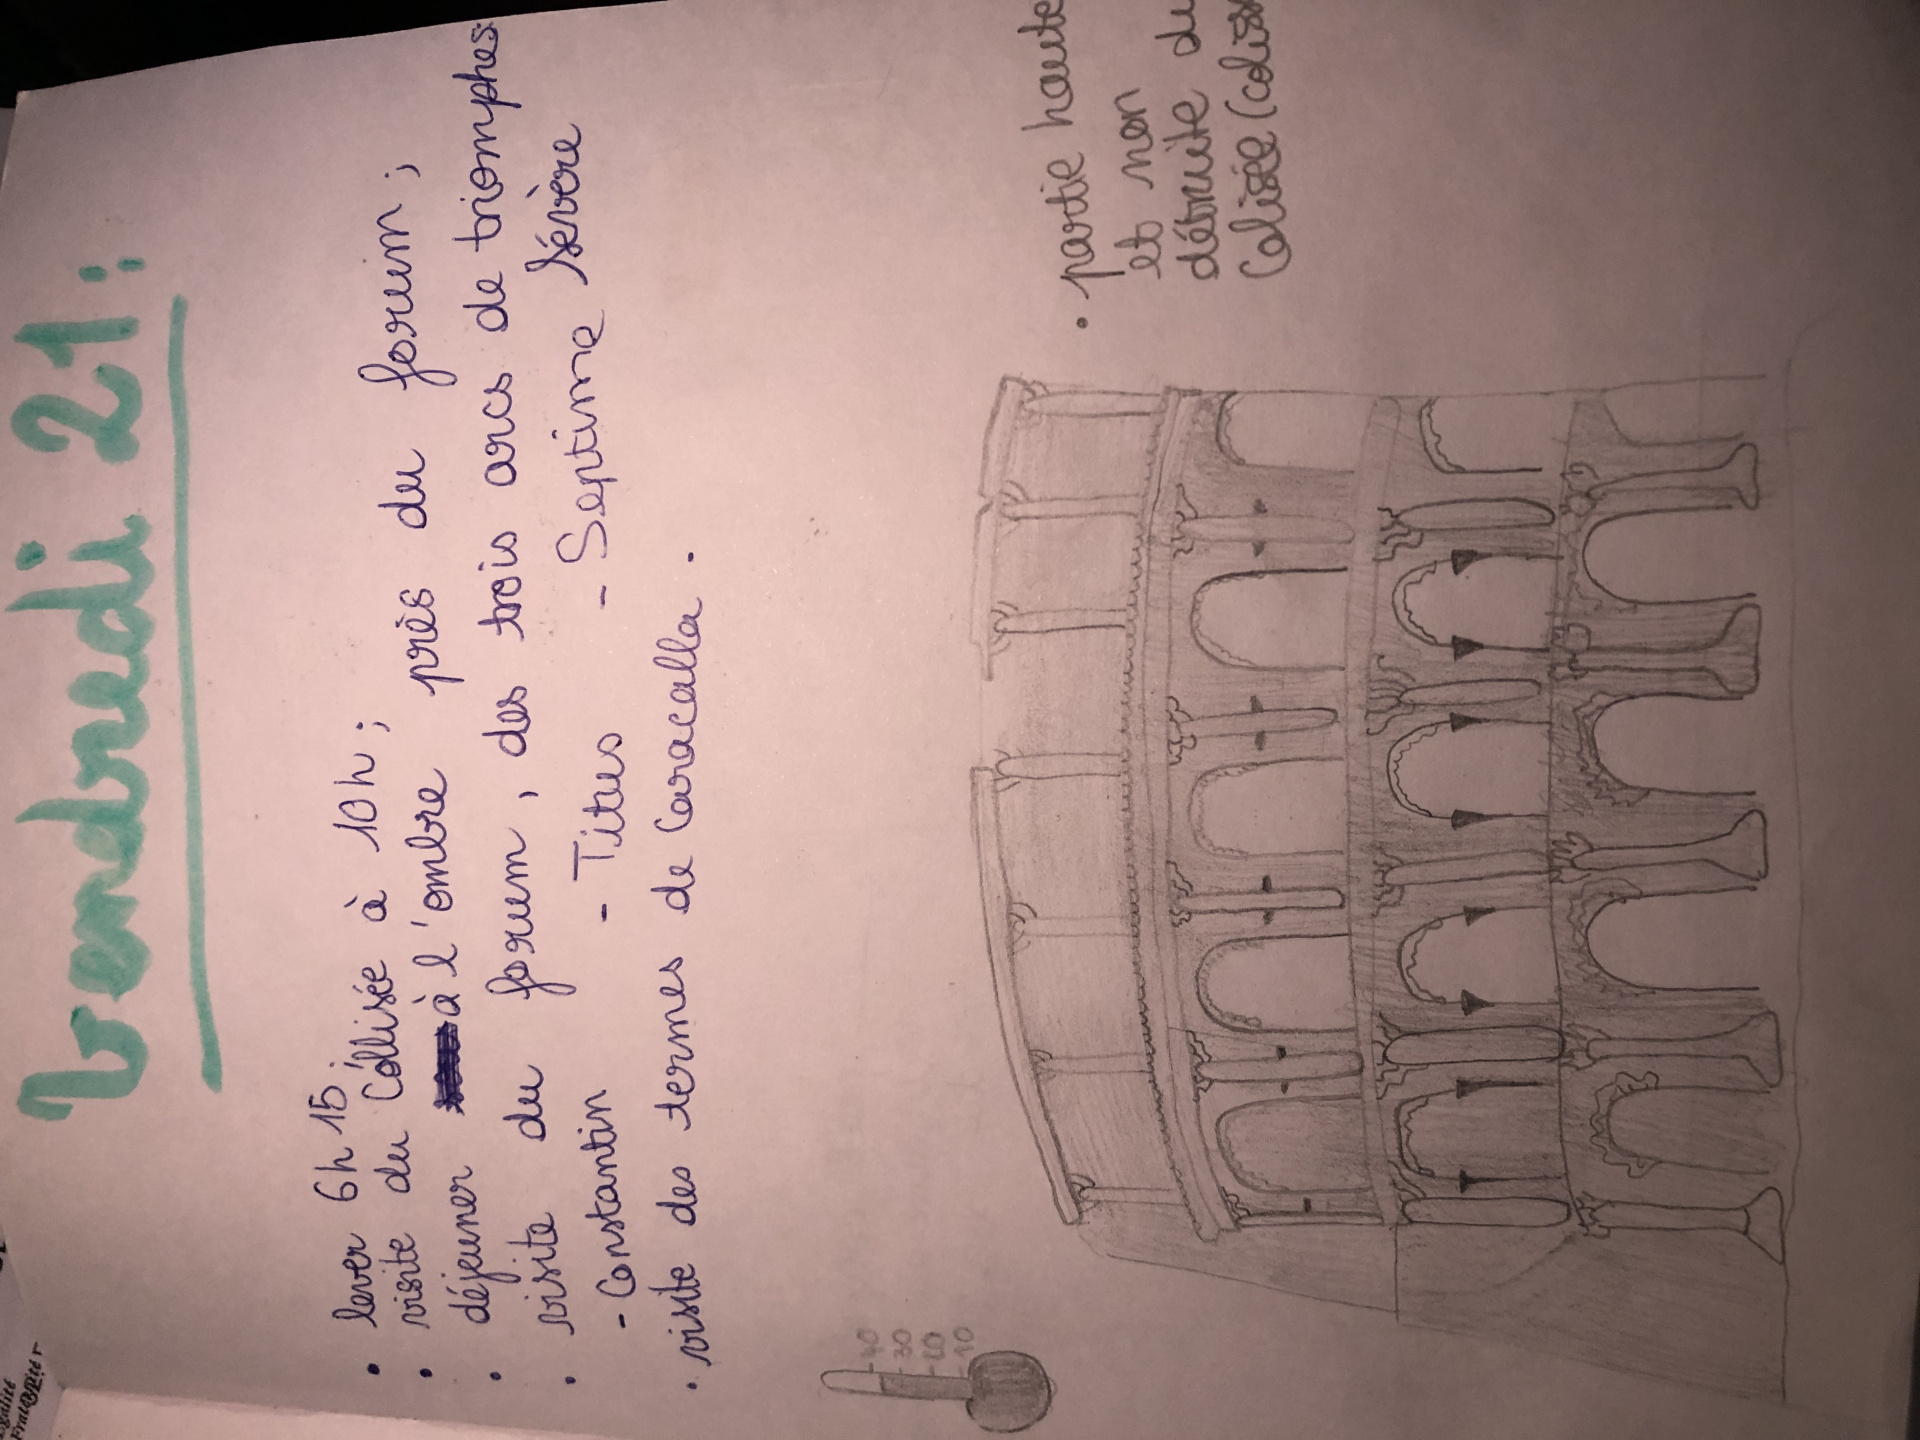 Vendredi 21:
• lever 6h15;
• visite du Collisée à 10h;
• déjeuner à l'ombre près du forum;
• visite du forum, des trois arcs de triomphes:
- Constantin - Titus - Septime Sévère
• visite des termes de Caracalla.
-40
-30
-20
-10
• partie haute
et non
détruite du
Colisée (colis